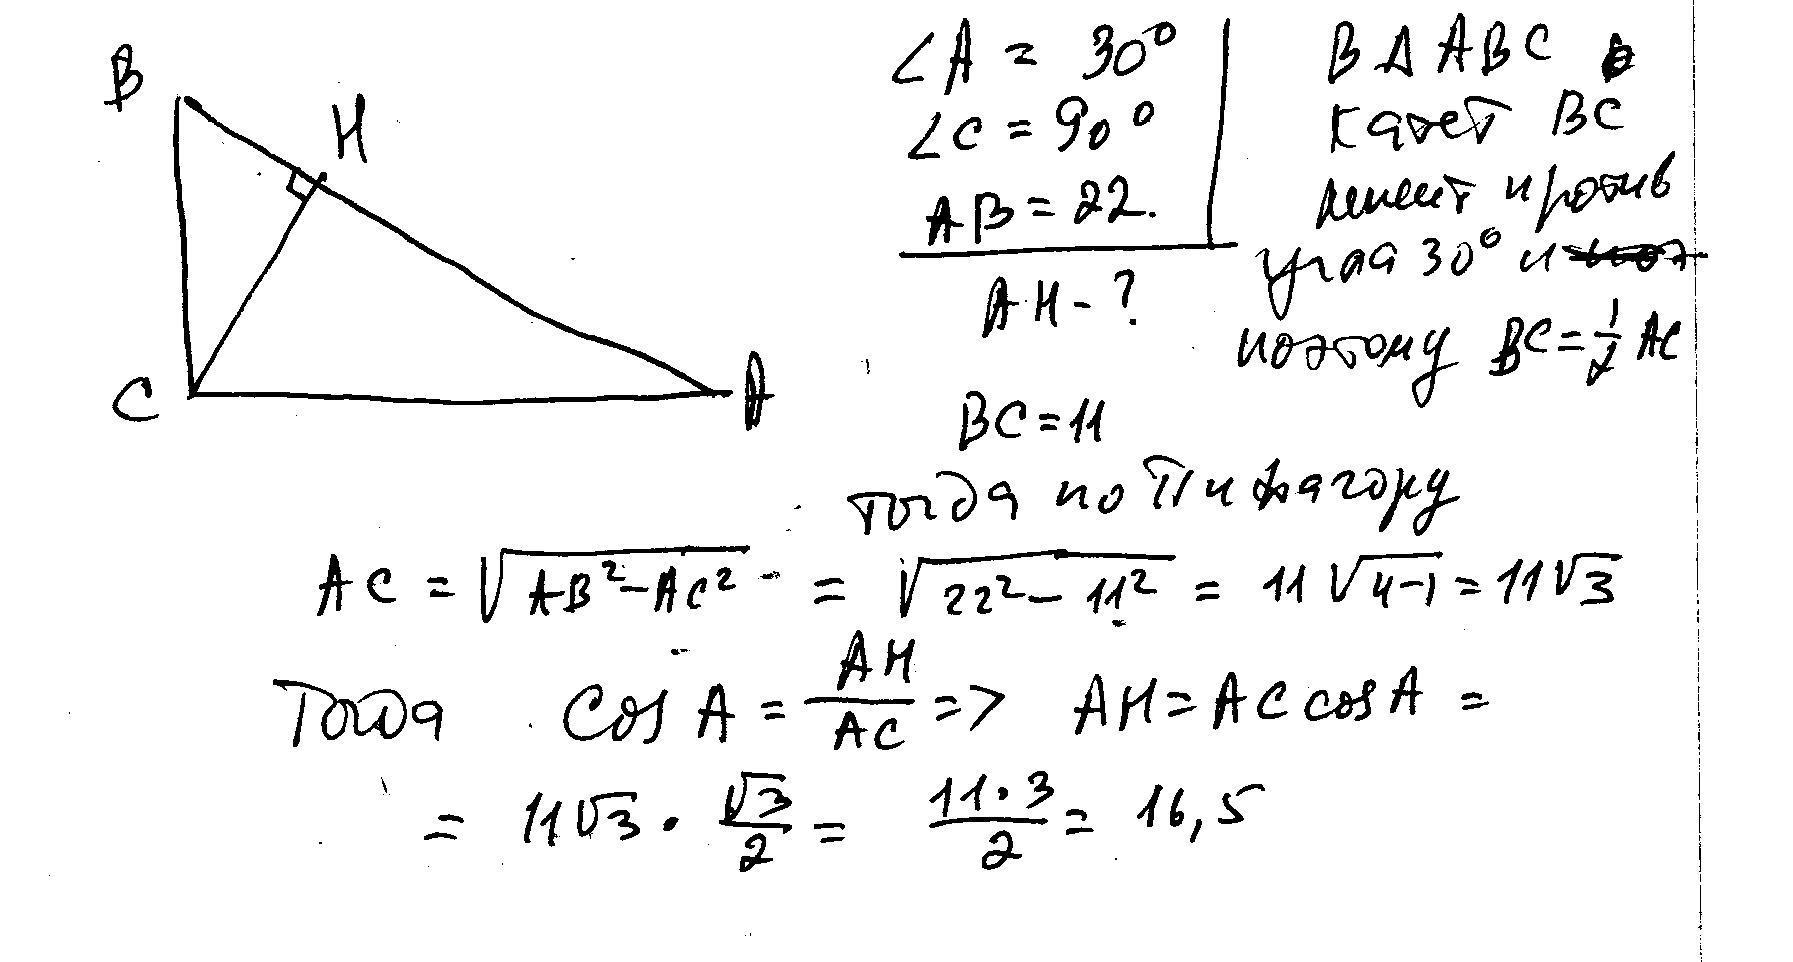 B
H
C
A
∠A = 30°
∠C = 90°
AB = 22.
AH - ?
В Δ ABC
катет BC
лежит против
угла 30° и
поэтому BC = 1/2 AC
BC = 11
тогда по Пифагору
AC = √(AB² - AC²) = √(22² - 11²) = 11√(4-1) = 11√3
Тогда cos A = AH/AC => AH = AC cos A =
= 11√3 · √3/2 = 11·3/2 = 16,5